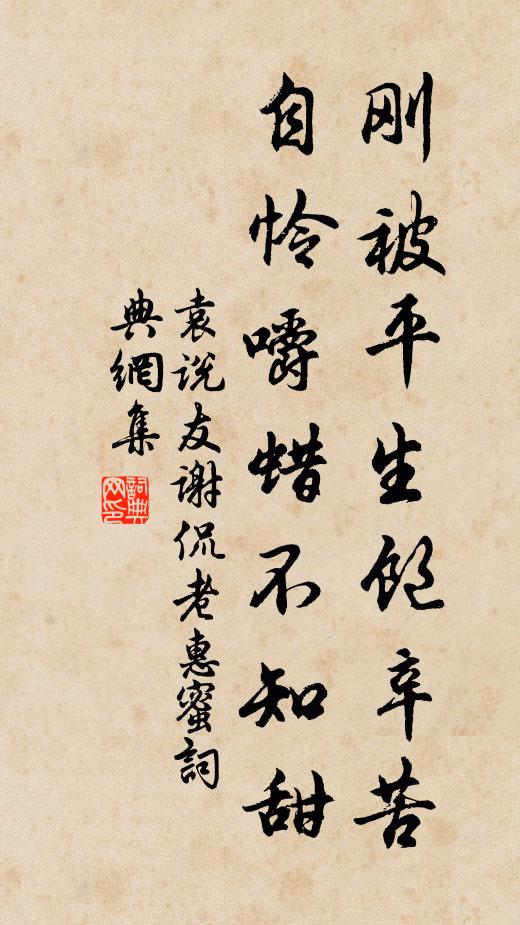 刚被平生饱辛苦
自怜嚼蜡不知甜
袁说友谢侃老惠蜜詞
典網集
詞典网印